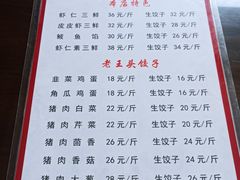 本店特色
虾仁三鲜 36元/斤 生饺子 32元/斤
皮皮虾三鲜 38元/斤 生饺子 34元/斤
鲅鱼馅 30元/斤 生饺子 26元/斤
虾仁素三鲜 32元/斤 生饺子 28元/斤
老王头饺子
韭菜鸡蛋 18元/斤 生饺子 16元/斤
角瓜鸡蛋 18元/斤 生饺子 16元/斤
猪肉白菜 22元/斤 生饺子 20元/斤
猪肉芹菜 22元/斤 生饺子 20元/斤
猪肉茴香 26元/斤 生饺子 24元/斤
猪肉香菇 26元/斤 生饺子 24元/斤
猪肉大葱 28元/斤 生饺子